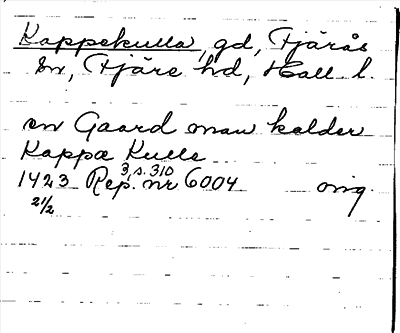 Kappekulla, gd, Fjärås
sn, Fjäre hd, Hall. l.
en Gaard man kalder
Kappæ Kulle
3, s. 310
1423 Rep. nr 6004 orig.
2 1/2